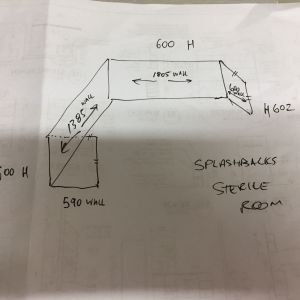 600 H
1805 WALL
1385 WALL
H 602
00 H
590 WALL
SPLASHBACKS
STERILE
ROOM